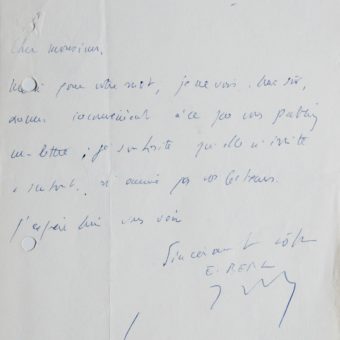 Cher Monsieur,
Merci pour votre mot, je ne vois, bien sûr,
aucun inconvénient à ce que vous publiiez
ma lettre ; je souhaite qu'elle n'irrite
pas vos lecteurs.
J'espère bien vous voir
Sincèrement vôtre
E. BERL